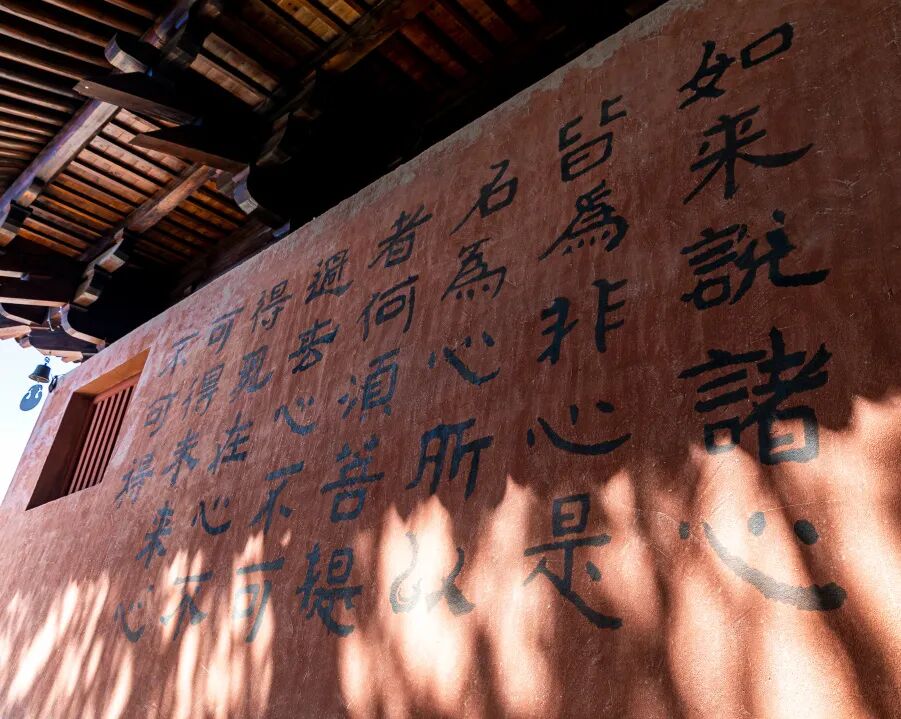 如來說諸心
皆為非心是
名為心所以
者何須菩提
過去心不可
得現在心不
可得未来心
不可得